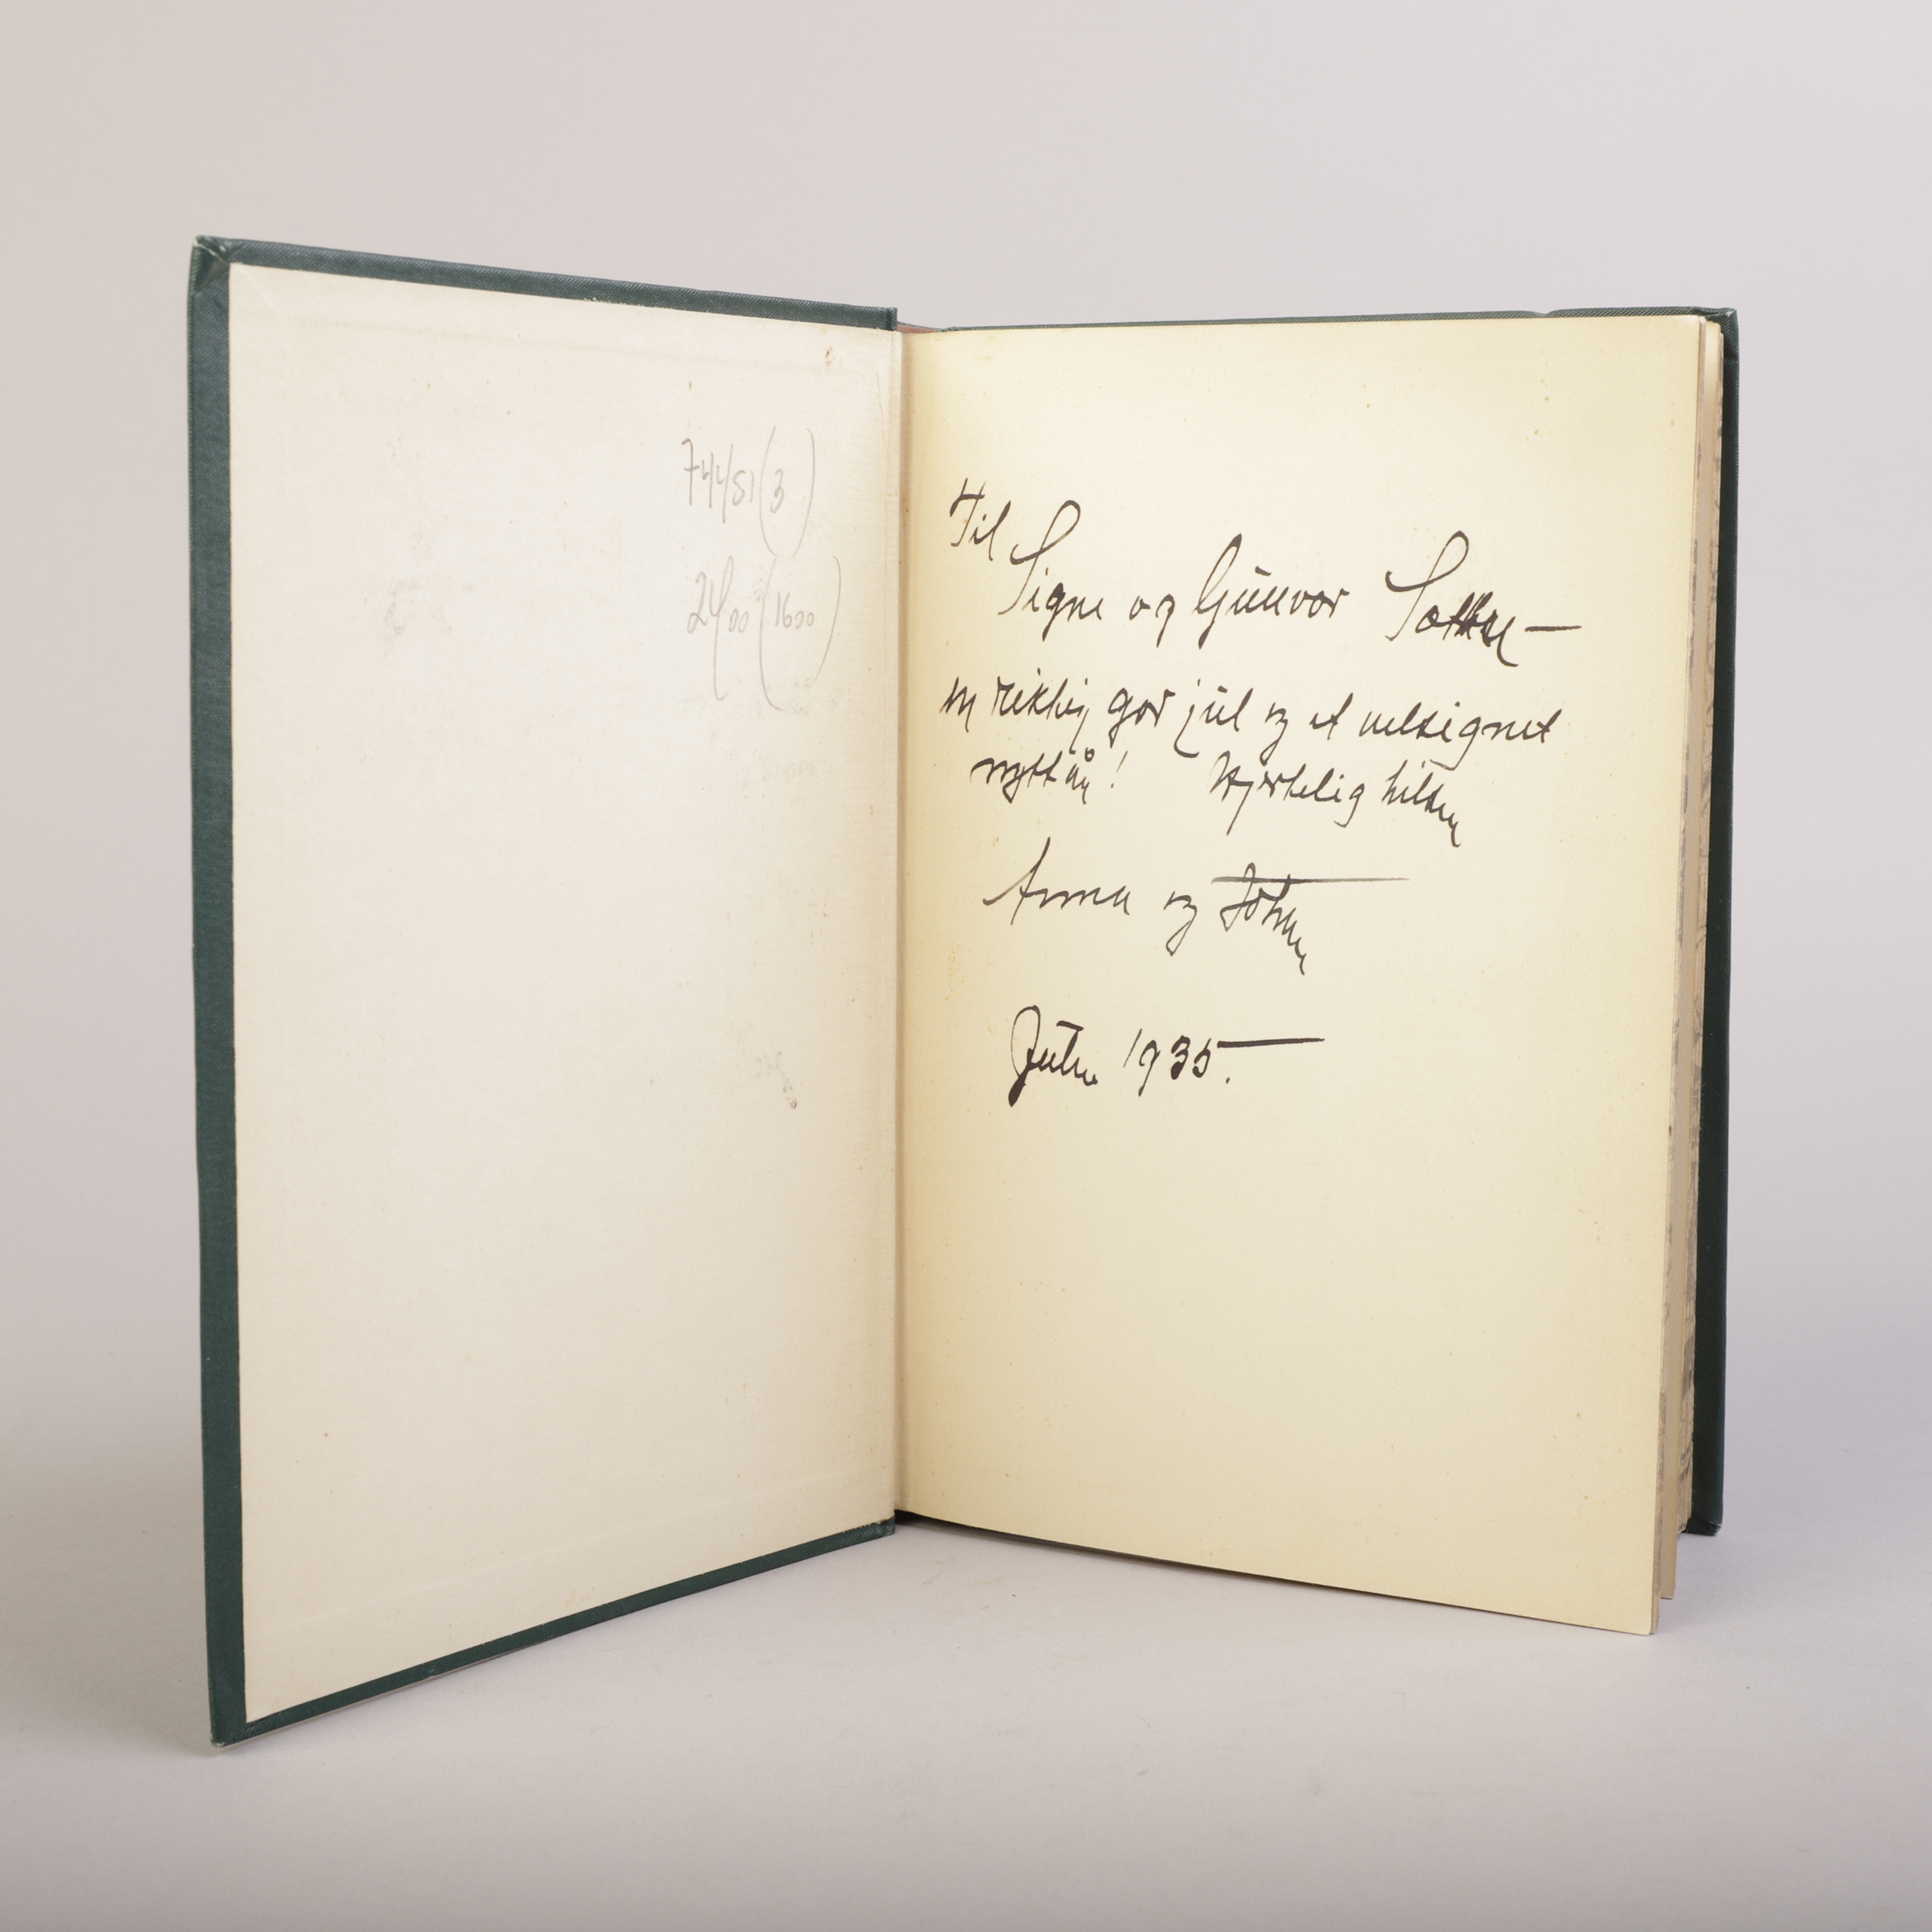 744/51 (3)
2400 (1600)
Til
Signe og Gunvor
en riktig god jul og et velsignet
nyttår! Hjertelig hilsen
Anna og Johan
Julen 1935.